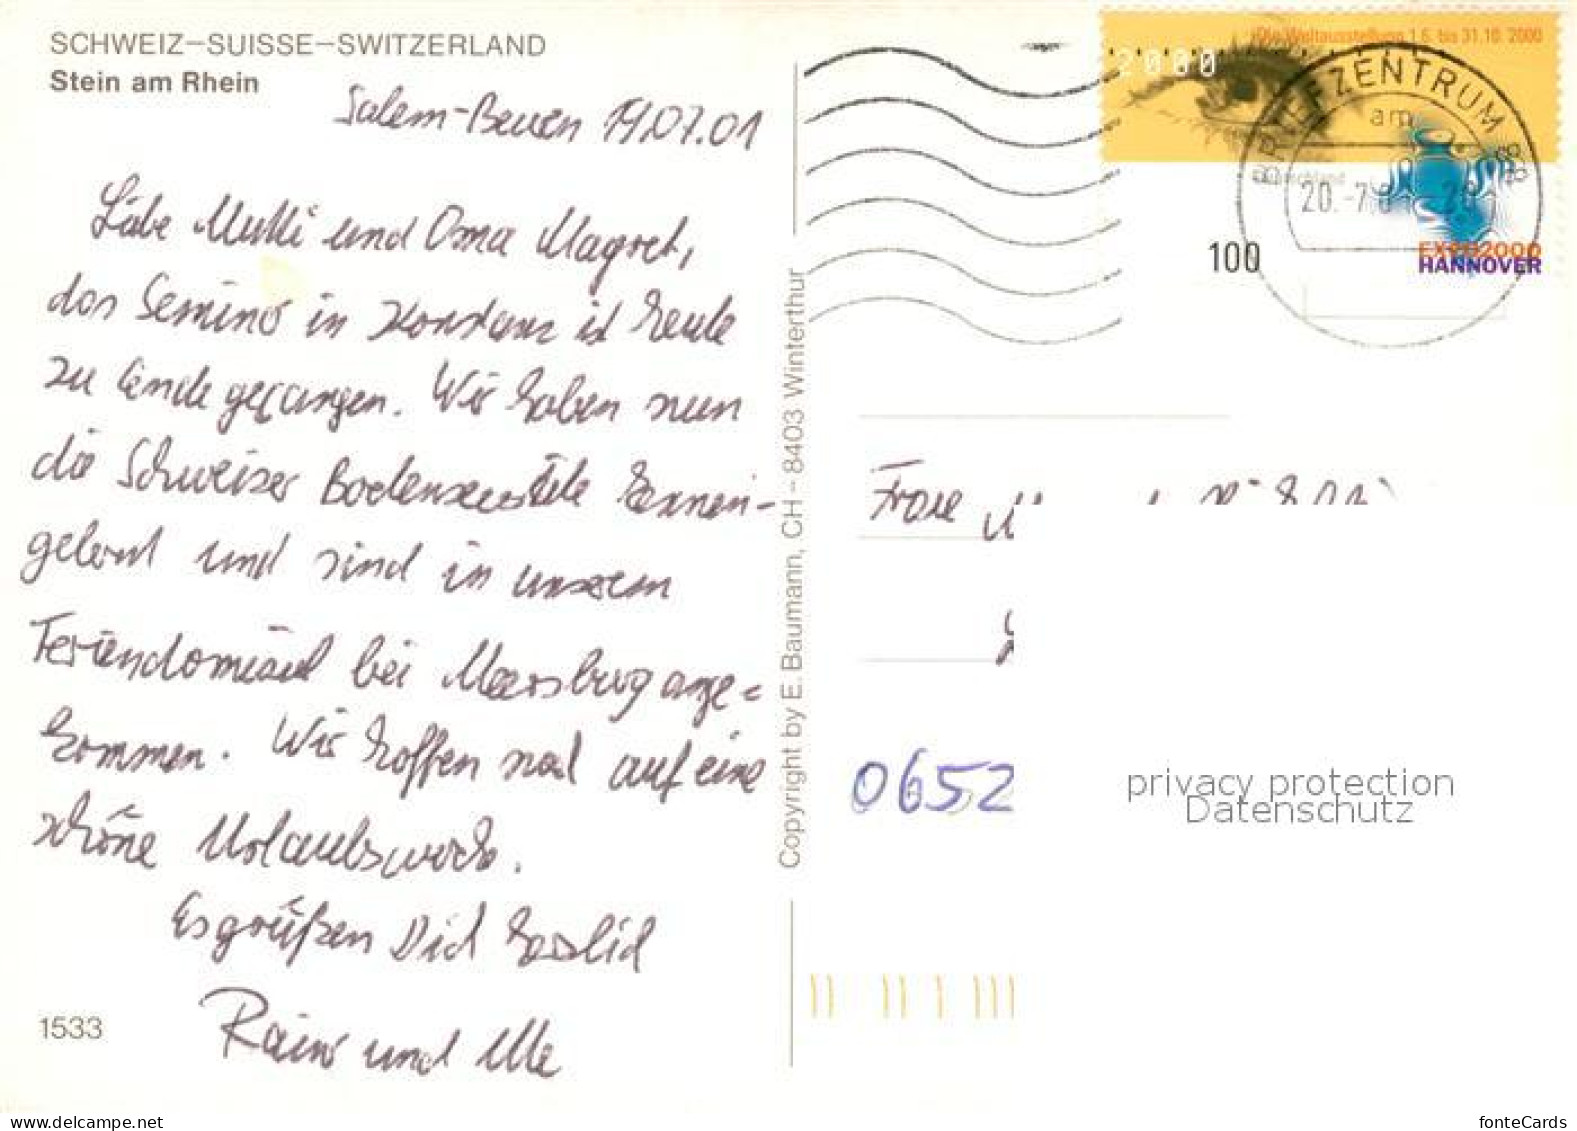 SCHWEIZ–SUISSE–SWITZERLAND
Stein am Rhein
Salem-Beuren 19.07.01
Liebe Mutti und Oma Magret,
das Seminar in Konstanz ist heute
zu Ende gegangen. Wir haben nun
die Schweizer Bodenseestile
gelernt und sind in unserem
Feriendomizil bei Meersburg ange=
kommen. Wir hoffen noch auf eine
schöne Urlaubswoche.
Es grüßen Dich herzlich
Rainer und Ulle
1533
Copyright by E. Baumann, CH – 8403 Winterthur
Die Weltausstellung 1.6. bis 31.10. 2000
2000
Deutschland
100
EXPO2000
HANNOVER
BRIEFZENTRUM 88
am
20.-7.01-20
Frau
0652
privacy protection
Datenschutz
www.delcampe.net
fonteCards